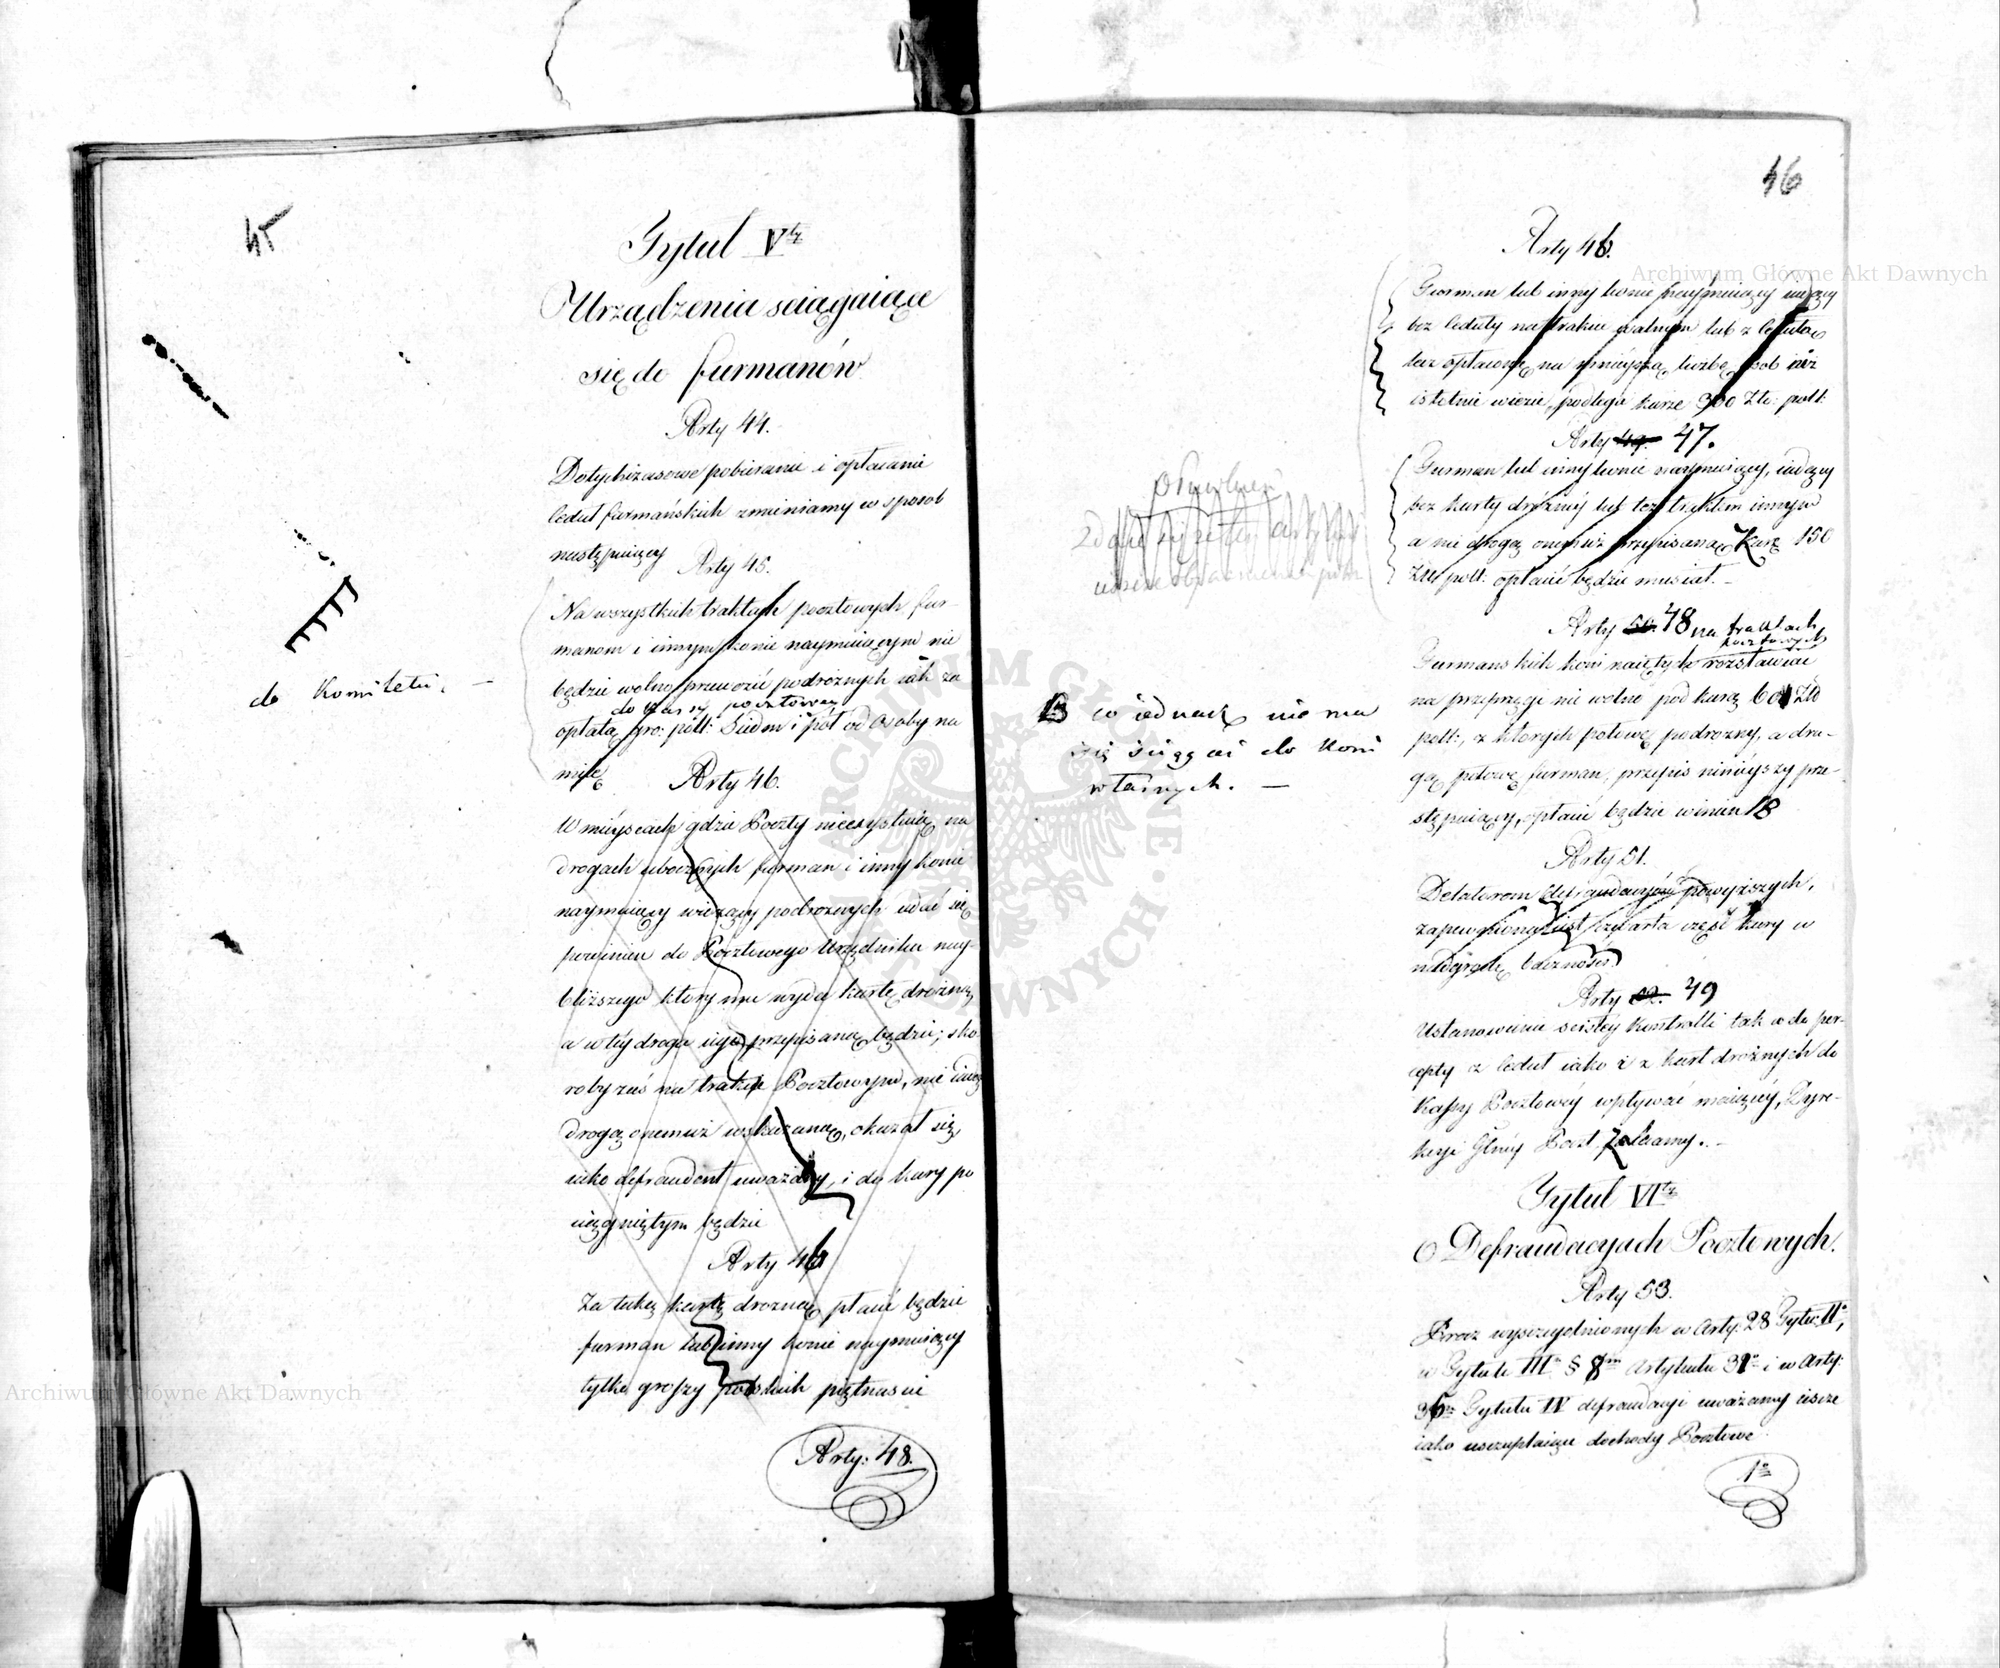 45
Tytul V ty
Urządzenia sciągaiące
się do furmanów
Arty 44.
Dotychczasowe pobieranie i opłacanie
cedul furmańskich zmieniamy w sposob
następuiący
Arty 45.
Na wszystkich traktach pocztowych fur-
manom i innym konie naymuiącym nie
będzie wolno przewozić podróżnych iak za
do kassy pocztowey
opłatą gro: pols: Siedm i pół od Osoby na
milę
do Komitetu. —
Arty 46.
W mieyscach gdzie Poczty nieexystuią na
drogach ubocznych furman i inny konie
naymuiący wiozący podróżnych udać się
powinien do Pocztowego Urzędnika nay-
bliższego który mu wyda kartę drożną
a w tey droga iego przepisaną będzie; sko
roby zaś na trakcie Pocztowym, nie iadąc
drogą onemuż wskazaną, okazał się
iako defraudent uważany, i do kary po
ciągniętym będzie
Arty 46
Za taką kartę drożną płacić będzie
furman lub inny konie naymuiący
tylko groszy polskich piętnaście
Arty: 48.
46
Arty 46.
Furman lub inny konie naymuiący iadący
bez ceduły na trakcie walnym lub z cedułą
lecz opłaconą na mnieyszą liczbę osob niż
istotnie wiezie, podlega karze 300 Zło: pols:
Arty 49. 47.
Furman lub inny konie naymuiący, iadący
bez karty drożney lub też traktem innym
a nie drogą onemuż przepisaną Karę 150
Złt: pols: opłacić będzie musiał. –
Arty 50. 48
na traktach
pocztowych
Furmanskich koni naiętych rozstawiać
na przeprzęgi nie wolno pod karą 60 Złt
pols:, z ktorych połowę podrożny, a dru-
gą połowę furman, przepis ninieyszy prze-
stępuiący, opłacić będzie winien B
B co iednak nie ma
się ściągać do koni
własnych. —
Arty 51.
Delatorom defraudacyów powyższych,
zapewnioną iest czwarta część kary w
nadgrodę baczności
Arty 52. 49
Ustanowienie scisłey kontrolli tak co do per-
cepty z cedul iako i z kart drożnych do
Kassy Pocztowey wpływać maiącey, Dyre-
kcyi Głney Poczt zalecamy. –
Tytul VI ty
O Defraudacyach Pocztowych.
Arty 53.
Prócz wyszczegolnionych w Arty: 28 Tytu: II°,
w Tytule III° § 8m Artykułu 31° i w Arty:
36m Tytułu IV defraudacyi uważamy ieszcze
iako uszczuplaiące dochody Pocztowe
1°
Archiwum Główne Akt Dawnych
Archiwum Główne Akt Dawnych
ARCHIWUM GŁÓWNE AKT DAWNYCH